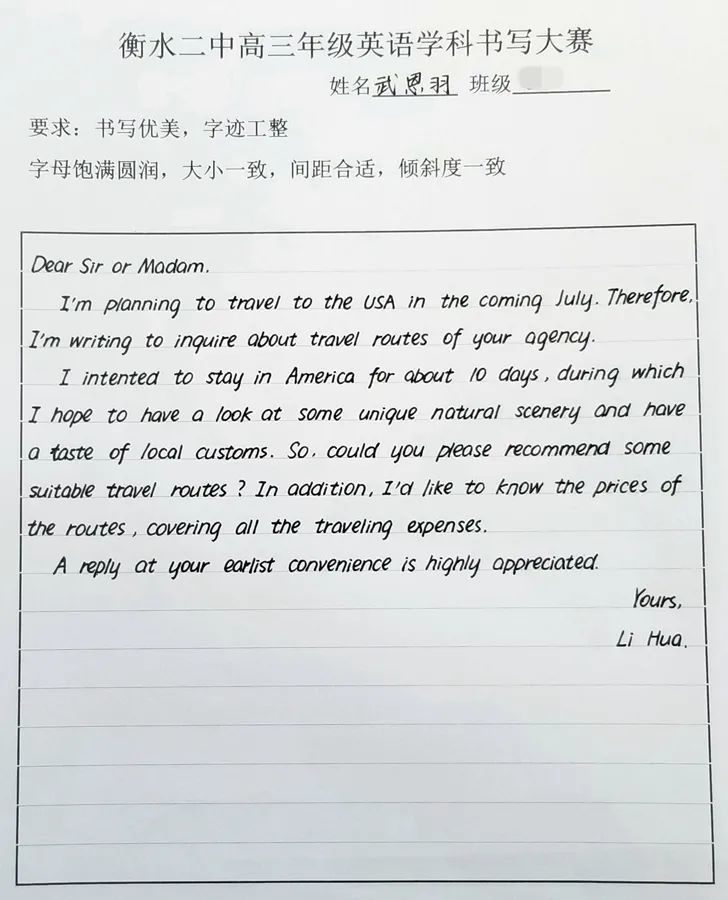 衡水二中高三年级英语学科书写大赛
姓名武恩羽 班级
要求：书写优美，字迹工整
字母饱满圆润，大小一致，间距合适，倾斜度一致
Dear Sir or Madam.
I'm planning to travel to the USA in the coming July. Therefore,
I'm writing to inquire about travel routes of your agency.
I intented to stay in America for about 10 days, during which
I hope to have a look at some unique natural scenery and have
a taste of local customs. So, could you please recommend some
suitable travel routes? In addition, I'd like to know the prices of
the routes, covering all the traveling expenses.
A reply at your earlist convenience is highly appreciated.
Yours,
Li Hua.